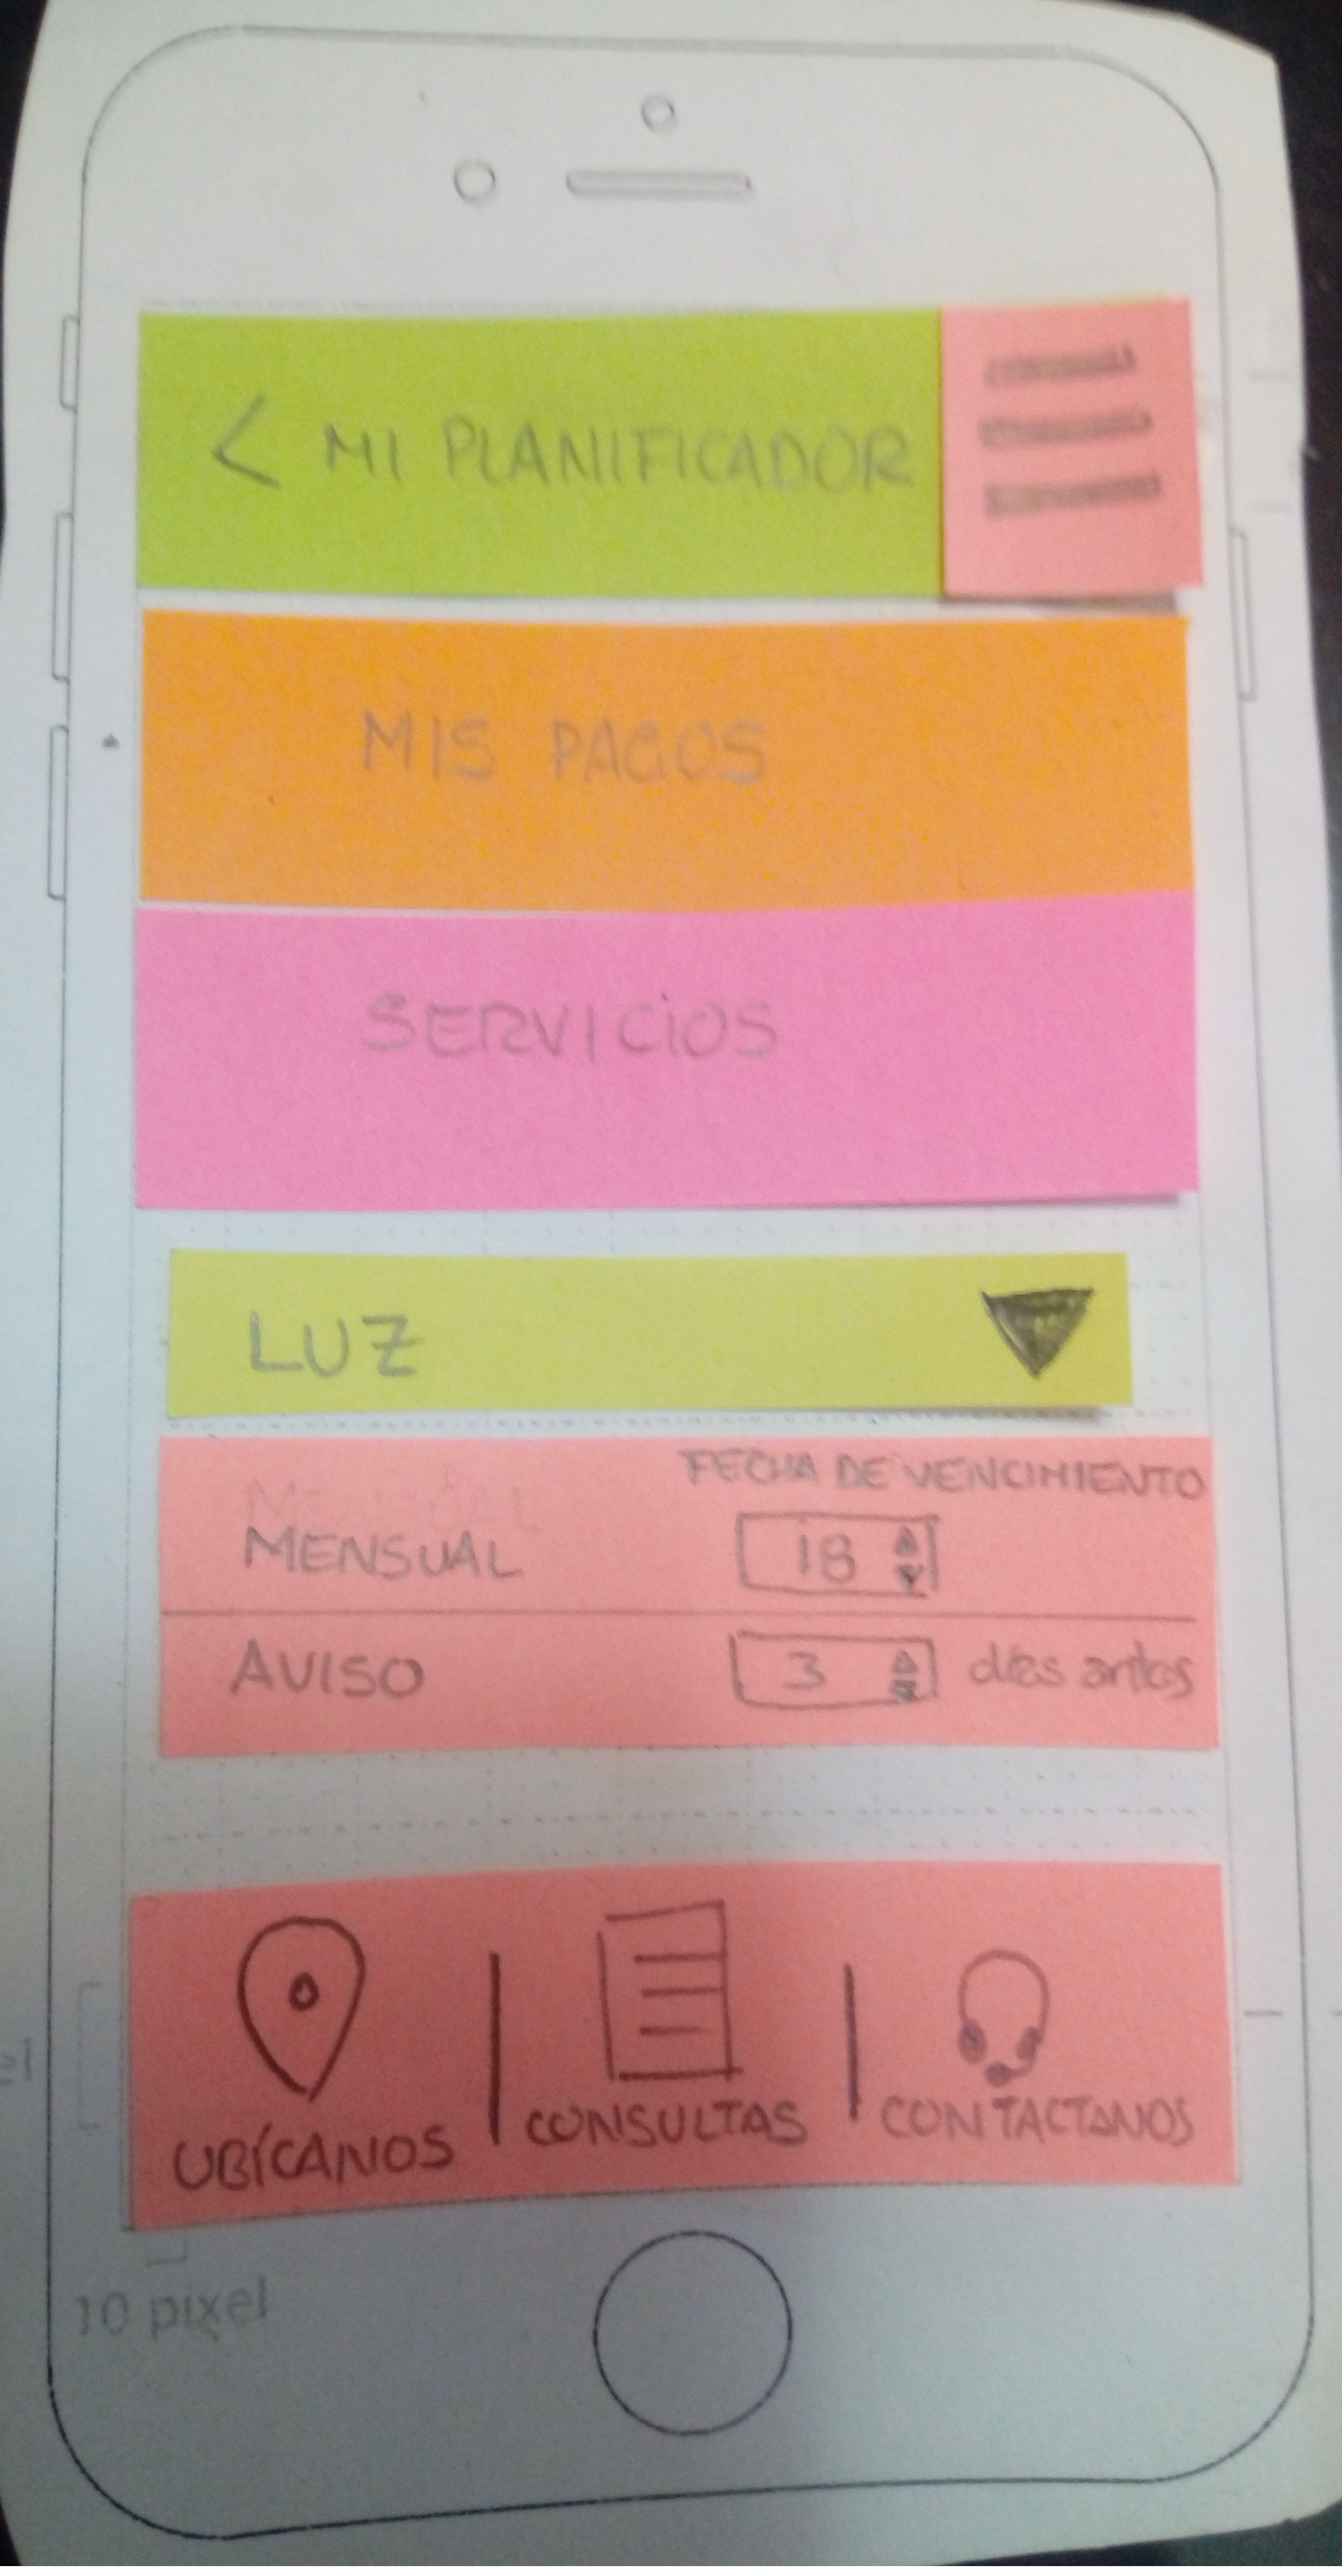 < MI PLANIFICADOR
MIS PAGOS
SERVICIOS
LUZ
FECHA DE VENCIMIENTO
MENSUAL
MENSUAL 18
AVISO 3 días antes
UBÍCANOS | CONSULTAS | CONTACTANOS
10 pixel